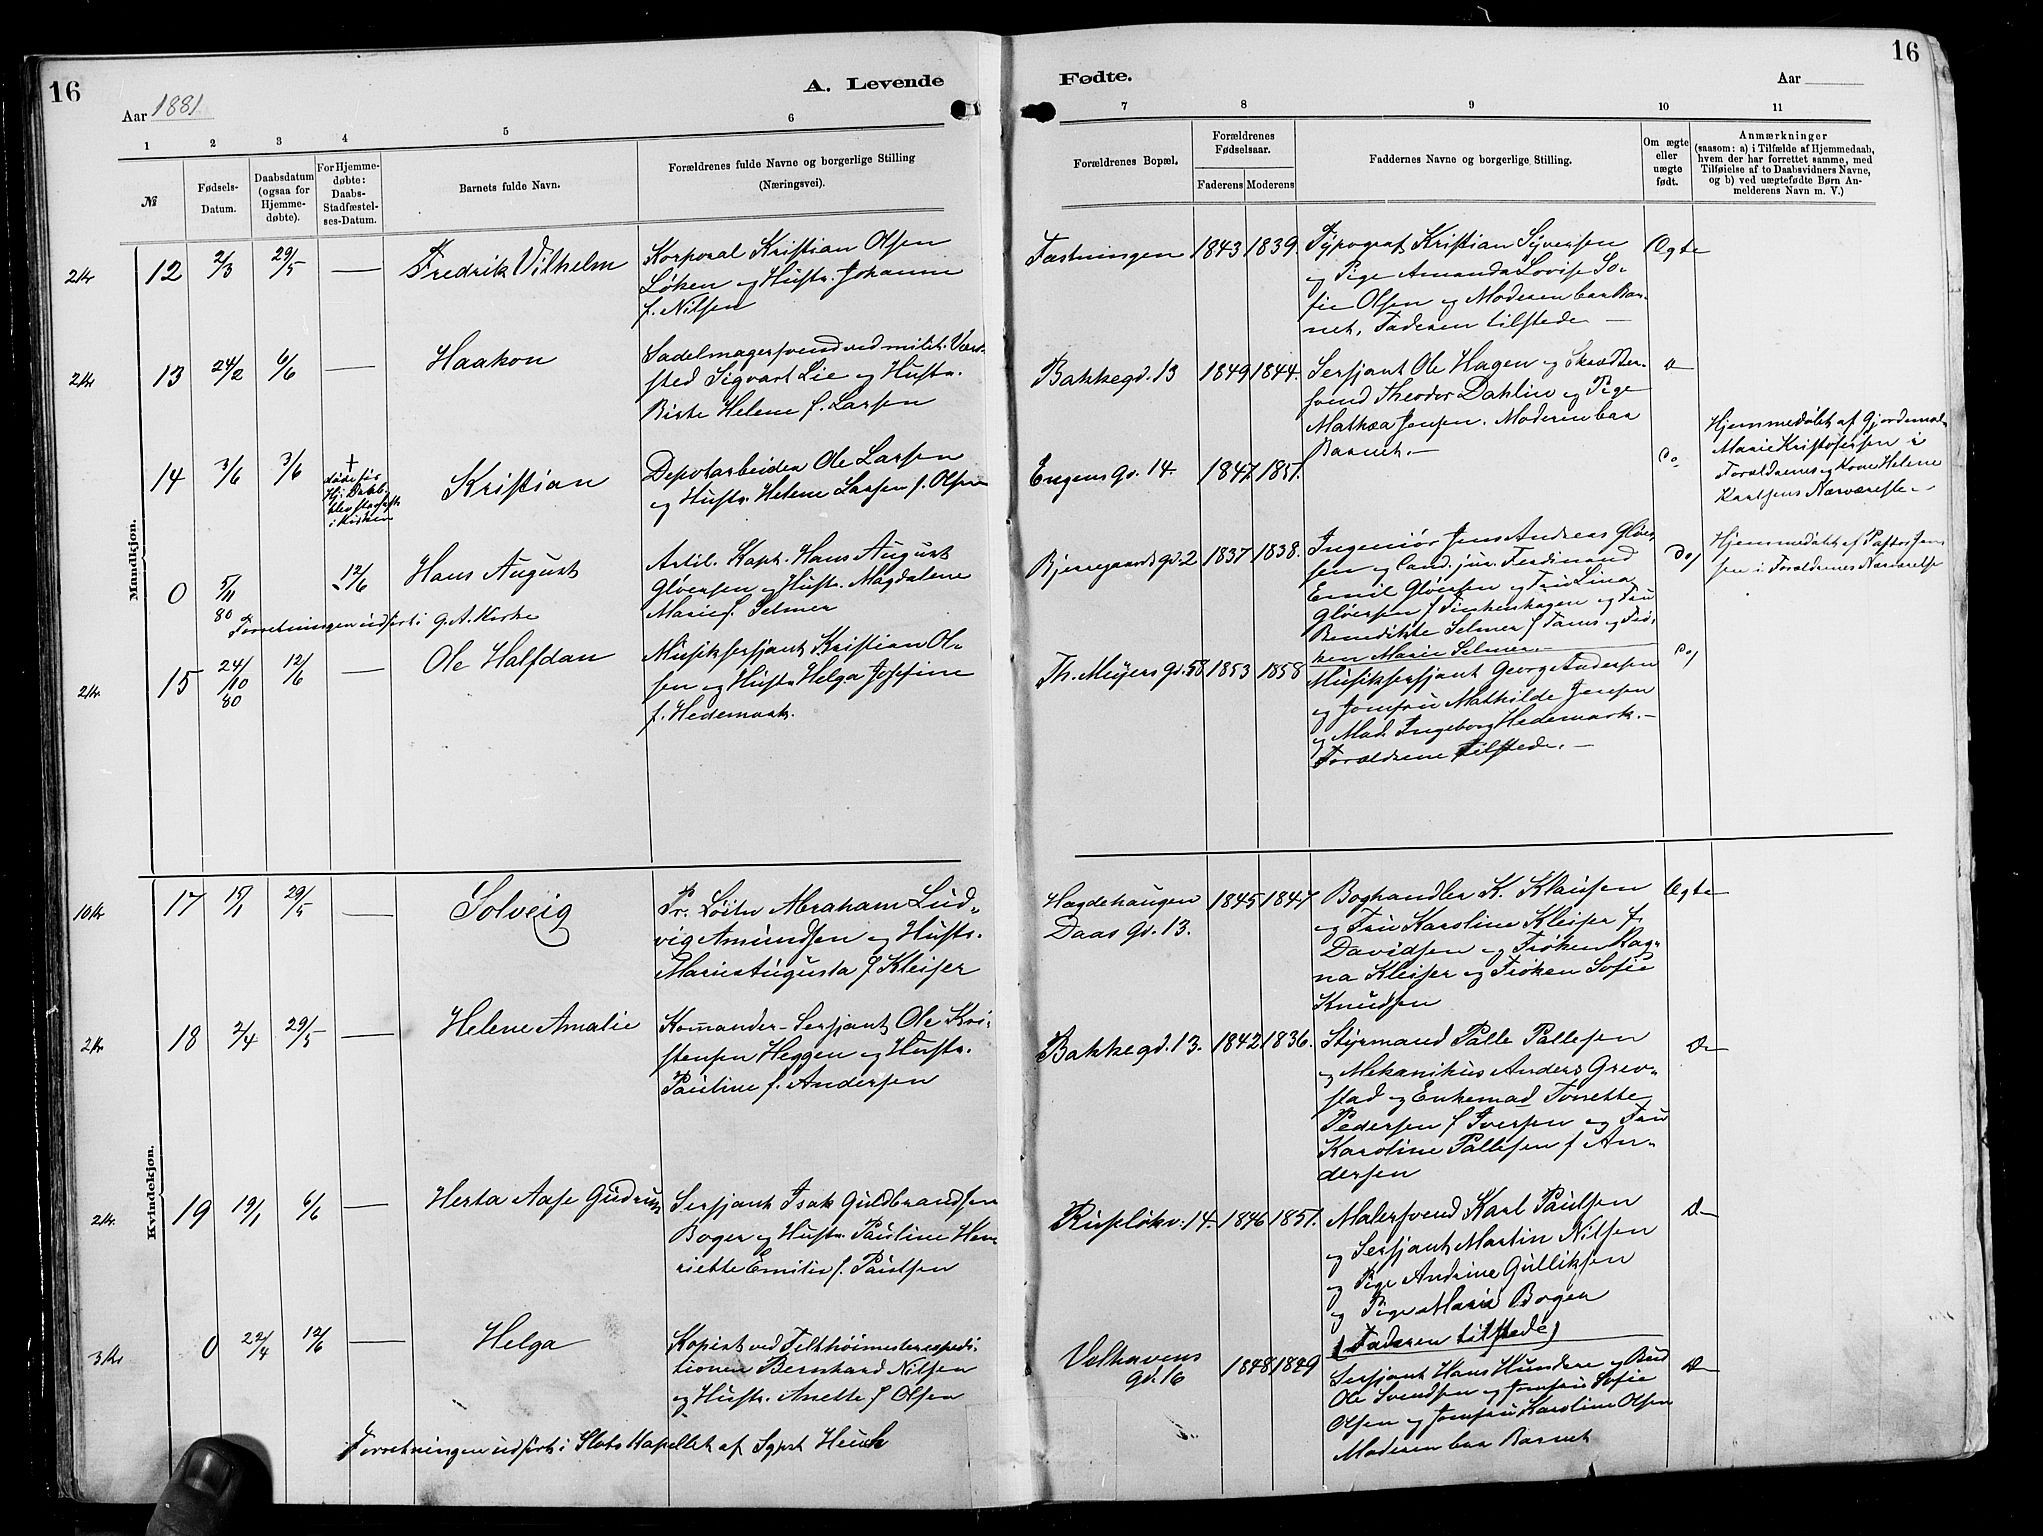 16
A. Levende
Fødte.
16
Aar 1881
Aar
1
2
3
4
5
6
7
8
9
10
11
№
Fødsels-
Datum.
Daabsdatum
(ogsaa for
Hjemme-
døbte).
For Hjemme-
døbte:
Daabs-
Stadfæstel-
ses-Datum.
Barnets fulde Navn.
Forældrenes fulde Navne og borgerlige Stilling
(Næringsvei).
Forældrenes Bopæl.
Forældrenes
Fødselsaar.
Faderens
Moderens
Faddernes Navne og borgerlige Stilling.
Om ægte
eller
uægte
født.
Anmærkninger
(saasom: a) i Tilfælde af Hjemmedaab,
hvem der har forrettet samme, med
Tilføielse af to Daabsvidners Navne,
og b) ved uægtefødte Børn An-
melderens Navn m. V.)
Mandkjøn.
2 Kr
12
2/3
29/5
—
Fredrik Vilhelm
Korporal Kristian Olsen
Løken og Hustr. Johanne
f. Nilsen
Fæstningen
1843
1839.
Typograf Kristian Syversen
og Pige Amanda Lovise So-
fie Olsen og Moderen bar Bar-
net, Faderen tilstede —
Ægte
2 Kr
13
24/2
6/6
—
Haakon
Sadelmagersvend ved milit. Værk-
sted Sigvart Lie og Hustr.
Birte Helene f. Larsen
Bakkegd. 13
1849
1844.
Sersjant Ole Hagen og Skrædder-
svend Theodor Dahlin og Pige
Mathea Jensen. Moderen bar
Barnet. —
14
3/6
3/6
Kristian
Depotarbeider Ole Larsen
og Hustr. Helene Larsen f. Olsen
Engens gd. 14.
1847
1851.
Do
Hjemmedøbt af Gjordemo.
Marie Kristofersen i
Forældrenes og Kone Helene
Karlsens Nærværelse —
0
5/11
80
12/6
Hans August
Artil. Kapt. Hans August
Gløersen og Hustr. Magdalene
Marie f. Selmer
Forretningen udført i g. A. Kirke
Bjerregaards gd. 2
1837
1838.
Ingeniør Jens Andreas Gløer-
sen og Cand. jur. Ferdinand
Emil Gløersen og Fru Lina
Gløersen f Finkenhagen og Fru
Benedikte Selmer f Fanes og Frø-
ken Marie Selmer. —
Do
Hjemmedøbt af Pastor Jen-
sen i Forældrenes Nærværelse
2 Kr.
15
24/10
80
12/6
—
Ole Halfdan
Musiksersjant Kristian Ol-
sen og Hustr. Helga Josefine
f. Hedemark.
Th. Meyers gd. 58
1853
1858
Musiksersjant Georg Andersen
og Jomfru Mathilde Jensen
og Mad. Ingeborg Hedemark. —
Forældrene tilstede. —
Do
Kvindekjøn.
10 Kr
17
15/1
29/5
—
Solveig
Pr. Løitn Abraham Lud-
vig Amundsen og Hustr.
Marie Augusta f Kleiser
Hægdehaugen
Daas gd. 13.
1845
1847
Boghandler K. Klausen
og Fru Karoline Kleiser f
Davidsen og Frøken Rag-
na Kleiser og Frøken Sofie
Knudsen
Ægte
2 Kr
18
2/4
29/5
—
Helene Amalie
Komander-Sersjant Ole Kri-
stensen Heggen og Hustr.
Pauline f. Andersen
Bakkegd. 13.
1842
1836.
Styrmand Palle Pallesen
og Mekanikus Anders Grev-
stad og Enkemad Torrette
Pedersen f Iversen og Fru
Karoline Pallesen f An-
dersen
2 Kr.
19
19/1
6/6
—
Herta Aase Gudrun
Sersjant Isak Guldbrandsen
Boger og Hustr. Pauline Hen-
riette Emilie f. Paulsen
Rusløkv. 14.
1846
1851.
Malersvend Karl Paulsen
og Sersjant Martin Nilsen
og Pige Andrine Gulliksen
og Pige Marie Bogen
(Faderen tilstede)
3 Kr
0
22/4
12/6
—
Helga
Kopist ved Feltthøimesterexpedi-
tionen Bernhard Nilsen
og Hustr. Anette f Olsen
Forretningen udført i Slots Kapellet af Sgprst Heuch
Velhavens
gd. 16
1848
1849
Sersjant Hans Hundere og Bud
Ole Svendsen og Jomfru Sofie
Olsen og Jomfru Karoline Olsen
Moderen bar Barnet